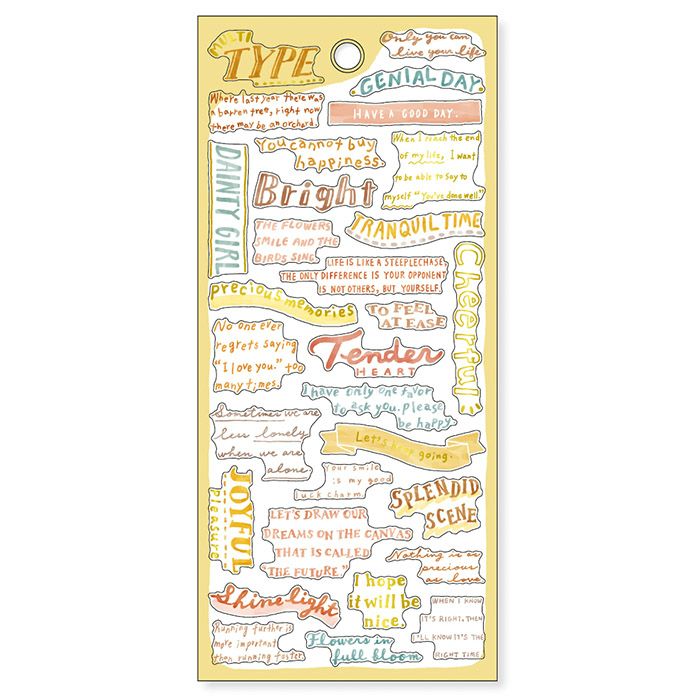 MULTI
TYPE
Only you can
live your life
GENIAL DAY
HAVE A GOOD DAY.
Where last year there was
a barren tree, right now
there may be an orchard.
You cannot buy
happiness.
When I reach the end
of my life, I want
to be able to say to
myself "You've done well."
DAINTY GIRL
Bright
TRANQUIL TIME
THE FLOWERS
SMILE AND THE
BIRDS SING
Cheerful
LIFE IS LIKE A STEEPLECHASE,
THE ONLY DIFFERENCE IS YOUR OPPONENT
IS NOT OTHERS, BUT YOURSELF.
precious memories
TO FEEL
AT EASE
No one ever
regrets saying
"I love you." too
many times.
Tender
HEART
I have only one favor
to ask you. please
be happy
Sometimes we are
less lonely
when we are
alone.
Let's keep going.
Your smile
is my good
luck charm.
JOYFUL
Pleasure
SPLENDID
SCENE
LET'S DRAW OUR
DREAMS ON THE CANVAS
THAT IS CALLED
"THE FUTURE"
Nothing is as
precious
as love
Shine light
I hope
it will be
nice.
WHEN I KNOW
IT'S RIGHT, THEN
I'LL KNOW IT'S THE
RIGHT TIME.
Running further is
more important
than running faster
Flowers in
full bloom